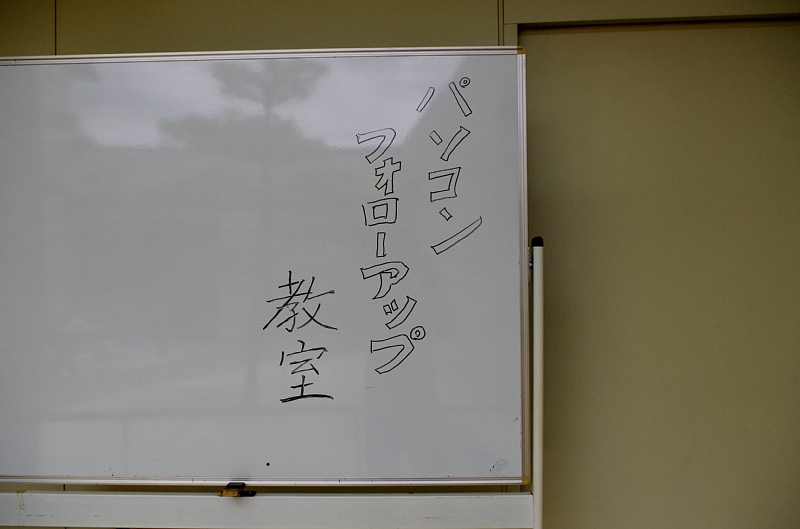 パソコン
フォローアップ
教室